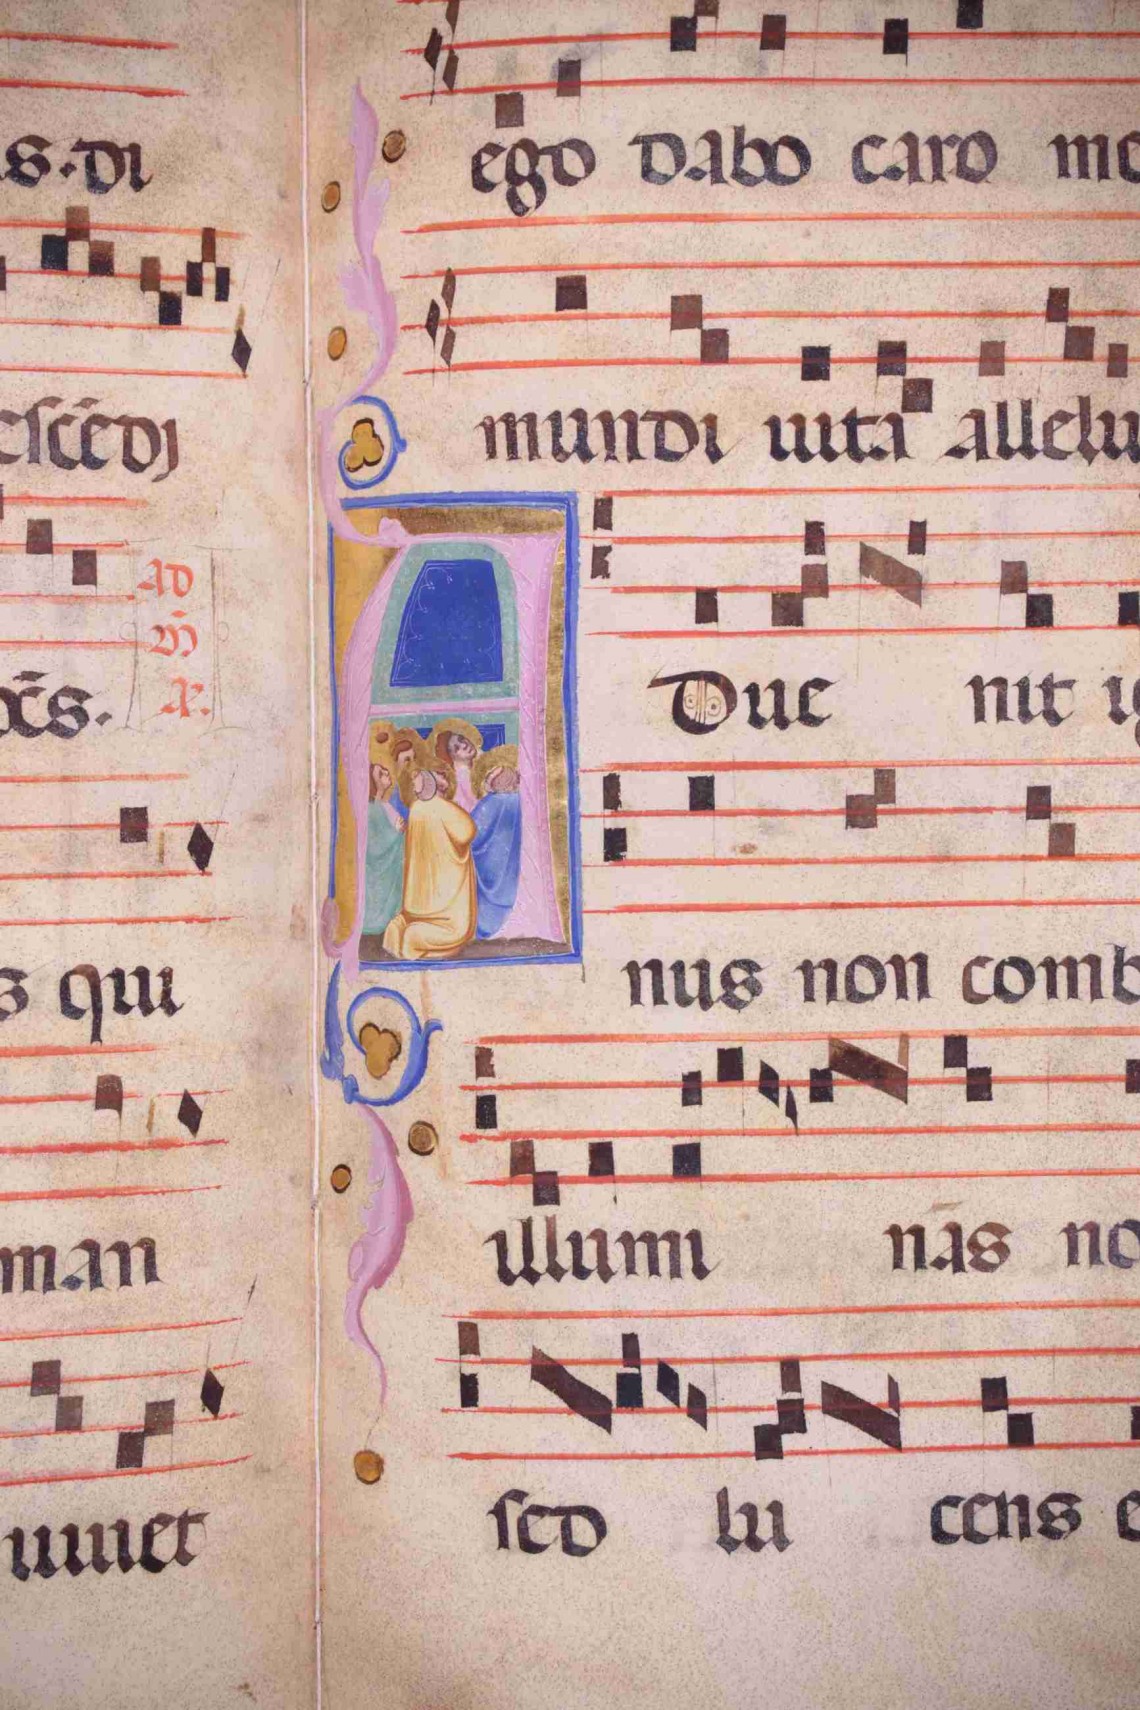 s·di
escēdj
ad
m̄
a͞.
x̄s.
s qui
man
uiuet
ego dabo caro me
mundi uita allelu
ADue nit ig
nus non comb
illumi nas no
sed lu cens e